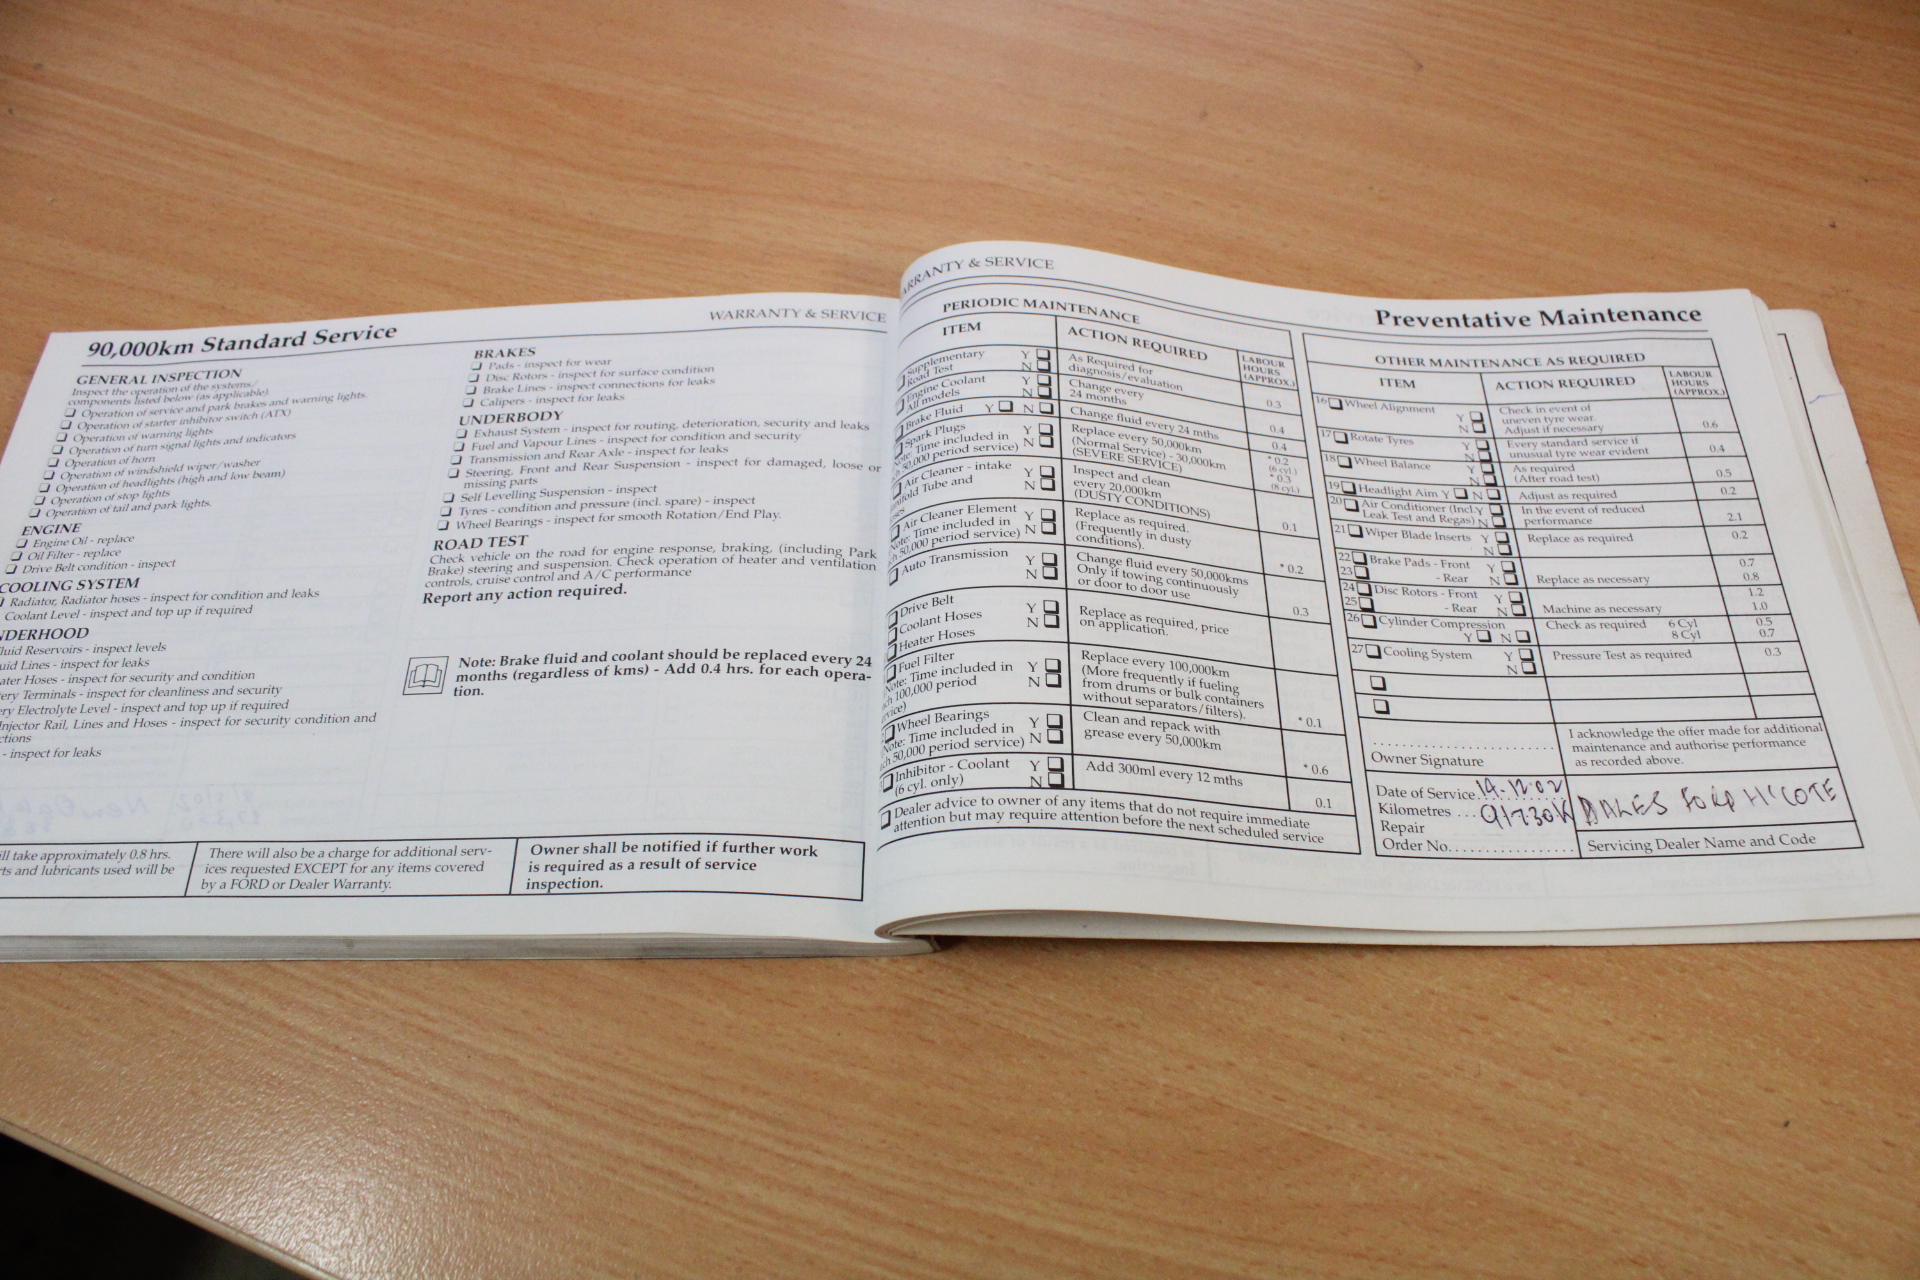 WARRANTY & SERVICE
90,000km Standard Service
GENERAL INSPECTION
Inspect the operation of the systems/
components listed below (as applicable).
❏ Operation of service and park brakes and warning lights.
❏ Operation of starter inhibitor switch (ATX)
❏ Operation of warning lights
❏ Operation of turn signal lights and indicators
❏ Operation of horn
❏ Operation of windshield wiper/washer
❏ Operation of headlights (high and low beam)
❏ Operation of stop lights
❏ Operation of tail and park lights.
ENGINE
❏ Engine Oil - replace
❏ Oil Filter - replace
❏ Drive Belt condition - inspect
COOLING SYSTEM
❏ Radiator, Radiator hoses - inspect for condition and leaks
Coolant Level - inspect and top up if required
NDERHOOD
luid Reservoirs - inspect levels
uid Lines - inspect for leaks
ater Hoses - inspect for security and condition
ery Terminals - inspect for cleanliness and security
ery Electrolyte Level - inspect and top up if required
Injector Rail, Lines and Hoses - inspect for security condition and
ctions
- inspect for leaks
BRAKES
❏ Pads - inspect for wear
❏ Disc Rotors - inspect for surface condition
❏ Brake Lines - inspect connections for leaks
❏ Calipers - inspect for leaks
UNDERBODY
❏ Exhaust System - inspect for routing, deterioration, security and leaks
❏ Fuel and Vapour Lines - inspect for condition and security
❏ Transmission and Rear Axle - inspect for leaks
❏ Steering, Front and Rear Suspension - inspect for damaged, loose or
missing parts
❏ Self Levelling Suspension - inspect
❏ Tyres - condition and pressure (incl. spare) - inspect
❏ Wheel Bearings - inspect for smooth Rotation/End Play.
ROAD TEST
Check vehicle on the road for engine response, braking, (including Park
Brake) steering and suspension. Check operation of heater and ventilation
controls, cruise control and A/C performance
Report any action required.
Note: Brake fluid and coolant should be replaced every 24
months (regardless of kms) - Add 0.4 hrs. for each opera-
tion.
ill take approximately 0.8 hrs.
rts and lubricants used will be
There will also be a charge for additional serv-
ices requested EXCEPT for any items covered
by a FORD or Dealer Warranty.
Owner shall be notified if further work
is required as a result of service
inspection.
ARRANTY & SERVICE
Preventative Maintenance
PERIODIC MAINTENANCE
ITEM ACTION REQUIRED LABOUR HOURS (APPROX.)
Supplementary Road Test Y ❏ N ❏ As Required for diagnosis/evaluation 0.3
Engine Coolant All models Y ❏ N ❏ Change every 24 months 0.4
Brake Fluid Y ❏ N ❏ Change fluid every 24 mths 0.4
Spark Plugs Y ❏ N ❏ Replace every 50,000km * 0.2
Note: Time included in (Normal Service) - 30,000km (6 cyl.)
h 50,000 period service) (SEVERE SERVICE) * 0.3 (8 cyl.)
Air Cleaner - intake Y ❏ Inspect and clean
ifold Tube and N ❏ every 20,000km
oses (DUSTY CONDITIONS) 0.1
❏ Air Cleaner Element Y ❏ Replace as required.
Note: Time included in N ❏ (Frequently in dusty
h 50,000 period service) conditions). * 0.2
❏ Auto Transmission Y ❏ Change fluid every 50,000kms
N ❏ Only if towing continuously
or door to door use 0.3
❏ Drive Belt Y ❏ Replace as required, price
❏ Coolant Hoses N ❏ on application.
❏ Heater Hoses
❏ Fuel Filter Y ❏ Replace every 100,000km
Note: Time included in N ❏ (More frequently if fueling
ch 100,000 period from drums or bulk containers
rvice) without separators/filters). * 0.1
❏ Wheel Bearings Y ❏ Clean and repack with
Note: Time included in N ❏ grease every 50,000km
ch 50,000 period service) * 0.6
❏ Inhibitor - Coolant Y ❏ Add 300ml every 12 mths
(6 cyl. only) N ❏ 0.1
❏ Dealer advice to owner of any items that do not require immediate
attention but may require attention before the next scheduled service
OTHER MAINTENANCE AS REQUIRED
ITEM ACTION REQUIRED LABOUR HOURS (APPROX.)
16 ❏ Wheel Alignment Y ❏ N ❏ Check in event of
uneven tyre wear.
Adjust if necessary 0.6
17 ❏ Rotate Tyres Y ❏ N ❏ Every standard service if
unusual tyre wear evident 0.4
18 ❏ Wheel Balance Y ❏ N ❏ As required
(After road test) 0.5
19 ❏ Headlight Aim Y ❏ N ❏ Adjust as required 0.2
20 ❏ Air Conditioner (Incl. Y ❏ In the event of reduced
Leak Test and Regas) N ❏ performance 2.1
21 ❏ Wiper Blade Inserts Y ❏ N ❏ Replace as required 0.2
22 ❏ Brake Pads - Front Y ❏ 0.7
23 ❏ - Rear N ❏ Replace as necessary 0.8
24 ❏ Disc Rotors - Front Y ❏ 1.2
25 ❏ - Rear N ❏ Machine as necessary 1.0
26 ❏ Cylinder Compression Check as required 6 Cyl 0.5
Y ❏ N ❏ 8 Cyl 0.7
27 ❏ Cooling System Y ❏ N ❏ Pressure Test as required 0.3
❏
❏
I acknowledge the offer made for additional
maintenance and authorise performance
as recorded above.
Owner Signature
Date of Service 19-12-02
Kilometres ... 91730K
Repair
Order No.
DALES FORD H'COTE
Servicing Dealer Name and Code